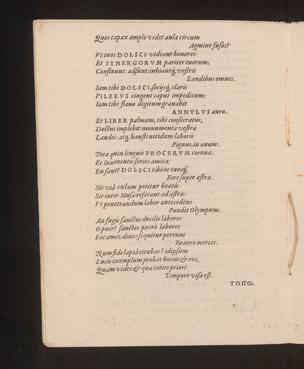 Quos capax amplo videt aula circum
Agmine fusos?
Vt tuos DOLSCI videant honores:
Et SYNERGORVM pariter tuorum:
Constant: adsunt: inhiantq́; vestris
Laudibus omnes.
Iam tibi DOLSCI, socijsq́; claris
PILEVS cinget caput impeditum:
Iam tibi flauo digitum grauabit
ANNVLVS auro.
Et LIBER palmam, tibi consecratus,
Doctus implebat monumenta vestra
Laudis: atq́; hausti nitidum laboris
Pignus, in æuum.
Tota quin linguis PROCERVM corona:
Et Iuuentutis series amica:
En sant DOLSCI tuosq́;
Fert super astra.
Sic via cœlum petitur beatis:
Sic inter Musa referant ad astra:
Vt penetrandum labor antecedens
Pandit Olympum.
An fugis sanctos docilis labores
O puer? sanctos puer labores
Fac ames: diues sequitur perenni
Fœnore merces.
Num fide lapsa titubas? id ipsum
Lucis exemplum probat huius: & res,
Quam vides: & qua toties priori
Tempore visa est.
ΤΟΠΟ: